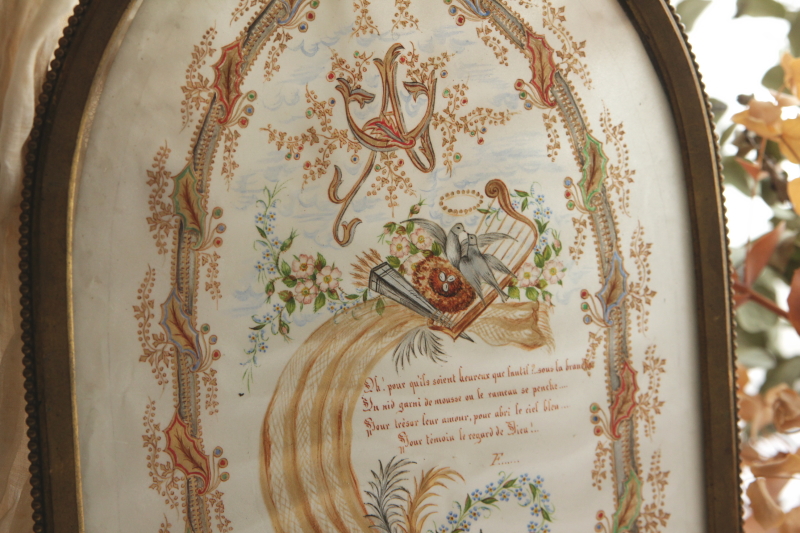 Oh! pour qu'ils soient heureux que faut-il?.. sous la branche
Un nid garni de mousse ou le rameau se penche—
Pour trésor leur amour, pour abri le ciel bleu—
Pour témoin le regard de Dieu!..